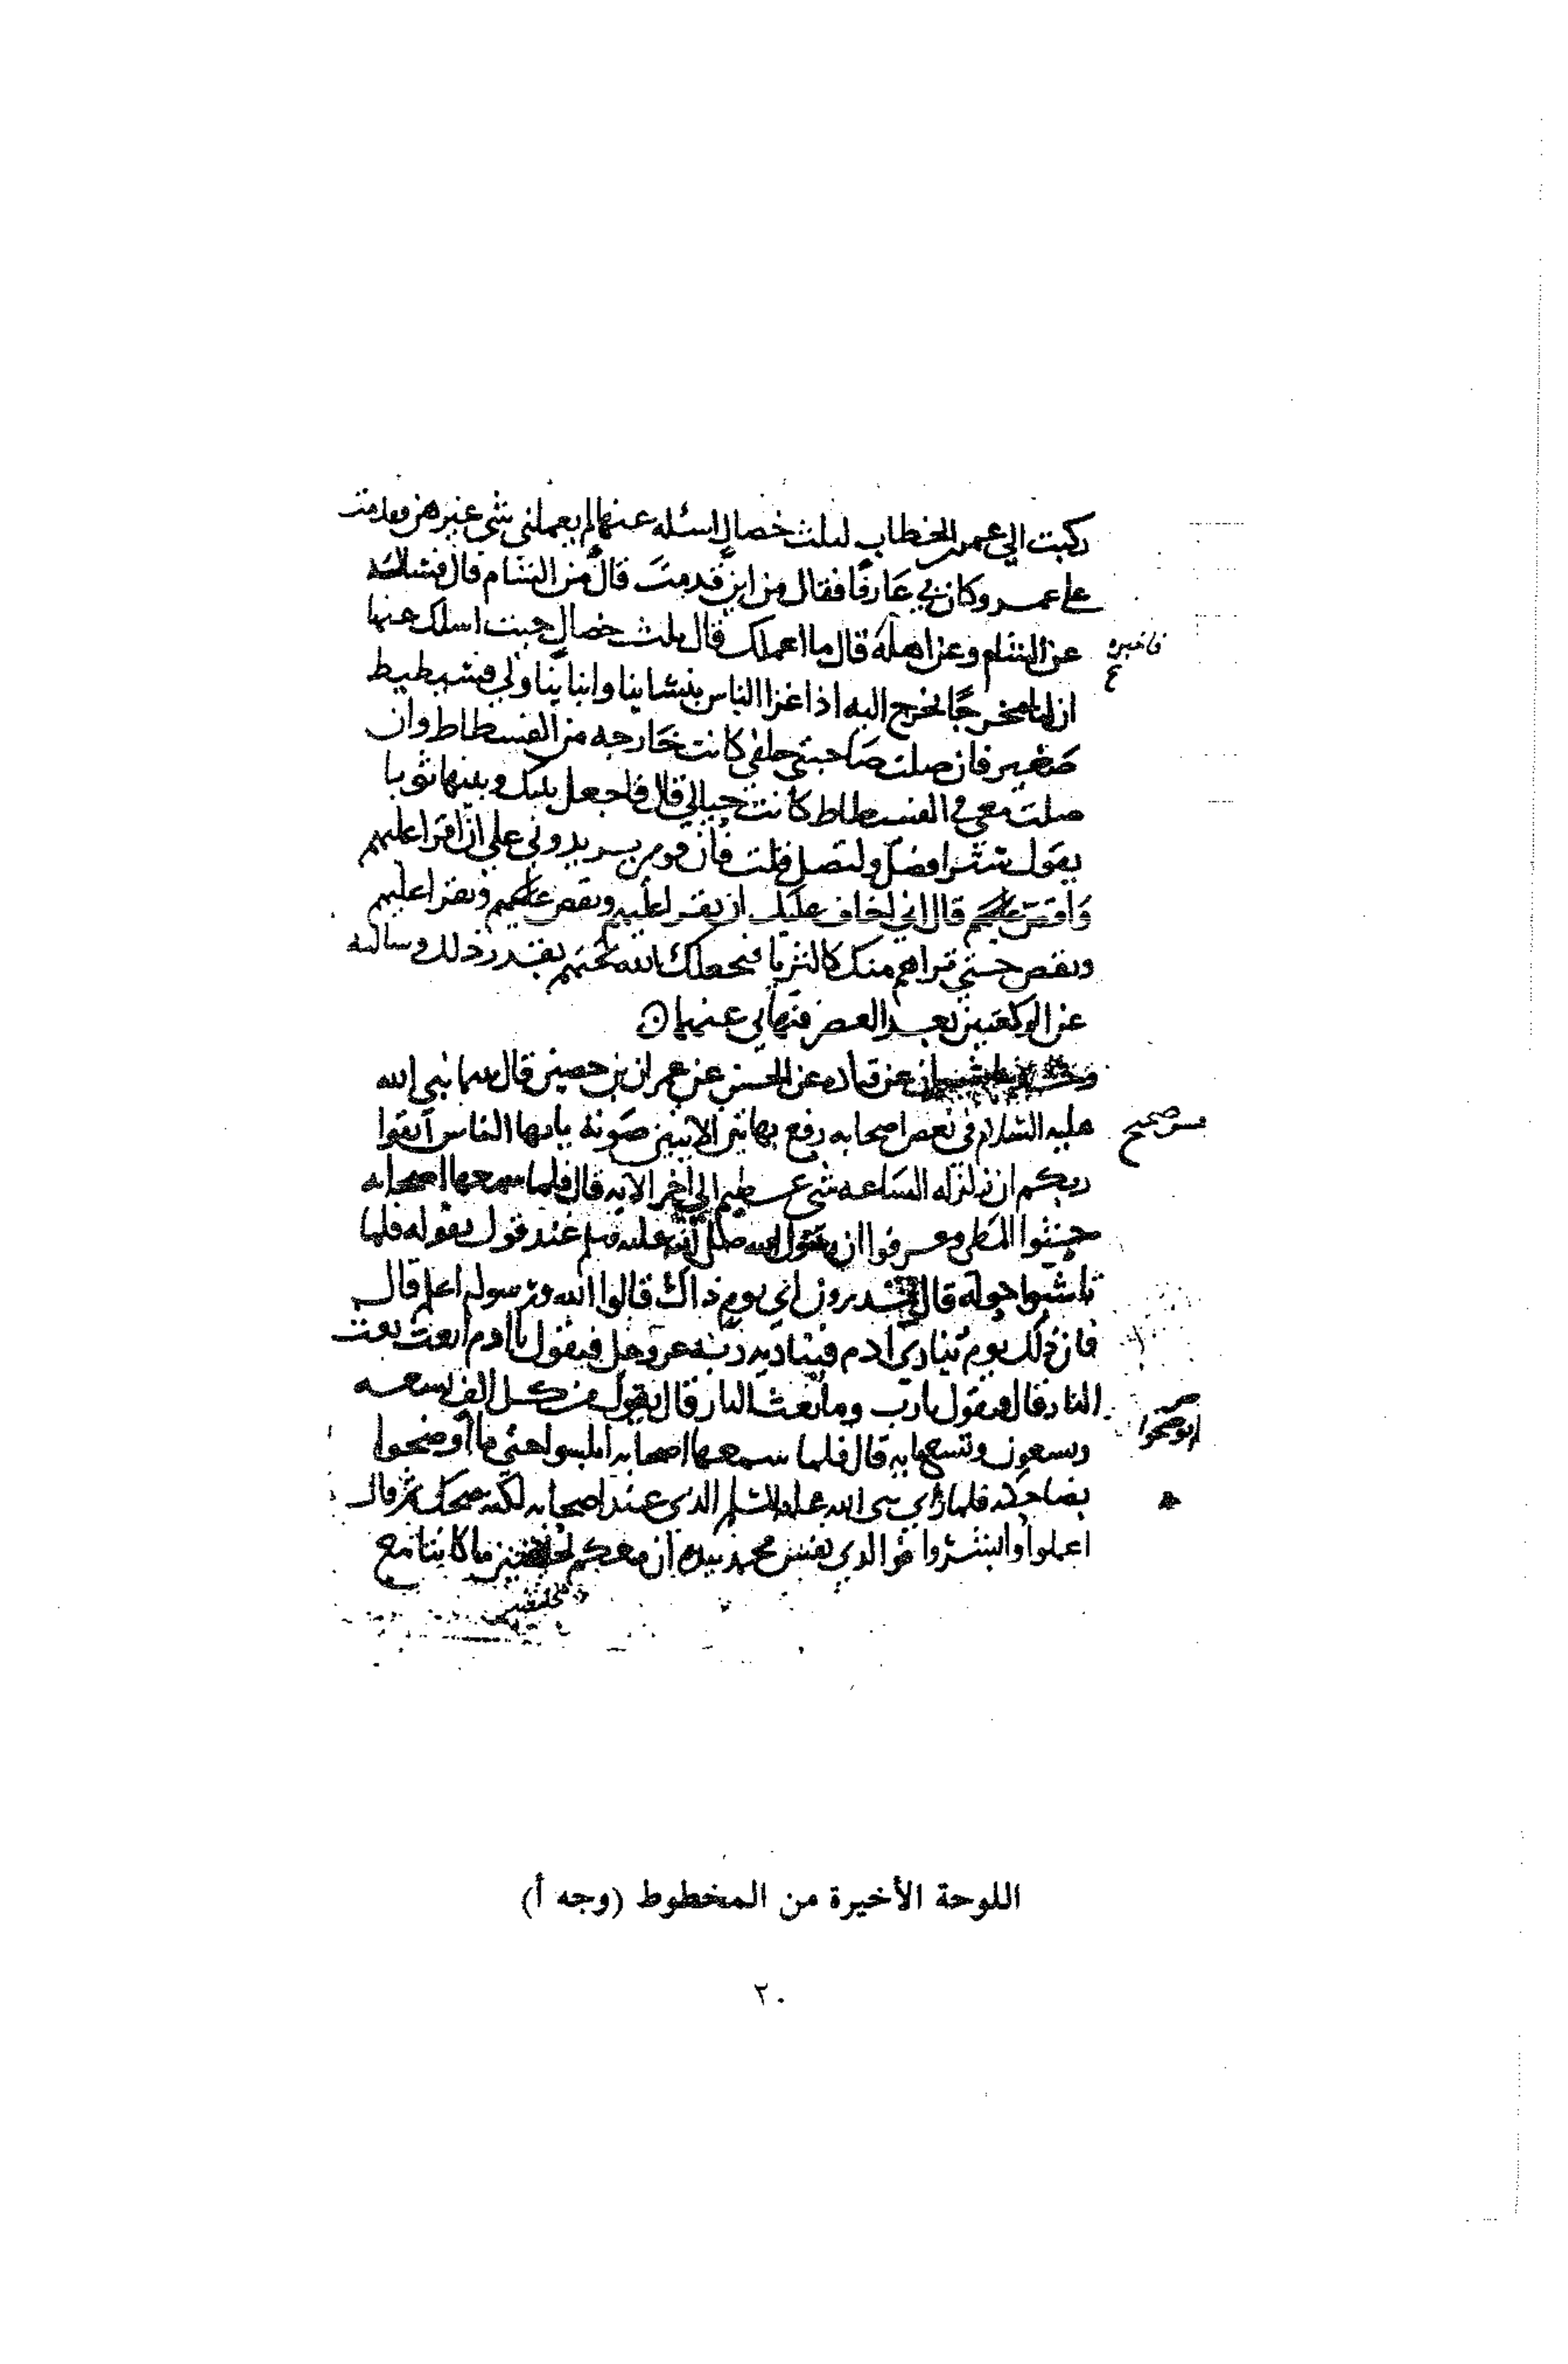 ركبت الي عمر بن الخطاب لثلث خصال اسئله عنها لم يعملني شي غيرهن فقدمت
علي عمر وكان بي عارفا فقال من اين قدمت قال من الشام قال فسالته
عن الشام وعن اهله قال ما اعملك قال ثلث خصال جيت اسلك عنها
فاخبره
ان لنا مخرجا نخرج اليه اذا غزا الناس بنسائنا وابنائنا ولي فسيطيط
صغير فان صلت صاحبتي خلفي كانت خارجه من الفسطاط وان
صلت معي في الفسطاط كانت حيالي قال فاجعل بينك وبينها ثوبا
يقول سترا وصل ولتصل قلت فان قومي يريدوني علي ان اقرا عليهم
واقص عليهم قال اني اخاف عليك ان تقرا عليهم وتقص عليهم وتقرا عليهم
وتقص حتي تراهم منك كالثريا فيجعلك الله تحتهم بقدر ذلك وسالته
عن الركعتين بعد العصر فنهاني عنهما
شيبان عن قتاده عن الحسن عن عمران بن حصين قال بينما نبي الله
عليه السلام في بعض اصحابه رفع بهاتين الايتين صوته يايها الناس اتقوا
صحيح
ربكم ان زلزله الساعه شي عظيم الي اخر الايه قال فلما سمعها اصحابه
حثوا المطي وعرفوا ان صلى الله عليه وسلم عند قول يقوله فلما
تاشبوا حوله قال تدرون اي يوم ذاك قالوا الله ورسوله اعلم قال
فان ذلك يوم ينادي ادم فيناديه ربه عز وجل فيقول يا ادم ابعث بعث
النار قال فيقول يا رب وما بعث النار قال يقول من كل الف تسعه
وتسعون وتسعمايه قال فلما سمعها اصحابه ابلسوا حتي ما اوضحوا
بضاحكه فلما راي نبي الله عليه السلم الذي عند اصحابه لكنه ضحك ثم قال
اعملوا وابشروا فوالذي نفس محمد بيده ان معكم لخليقتين ما كانتا مع
اللوحة الأخيرة من المخطوط (وجه أ)
٢٠